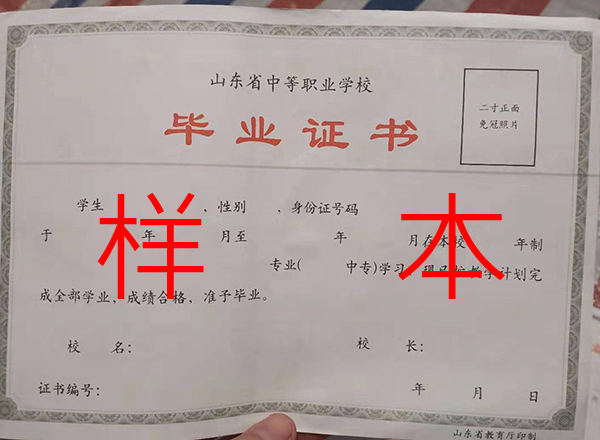 山东省中等职业学校
毕业证书
二寸正面
免冠照片
学生 、性别 、身份证号码
于 年 月至 年 月在本校 年制
专业( 中专)学习 计划完
成全部学业，成绩合格，准予毕业。
样本
校 名： 校 长：
证书编号： 年 月 日
山东省教育厅印制